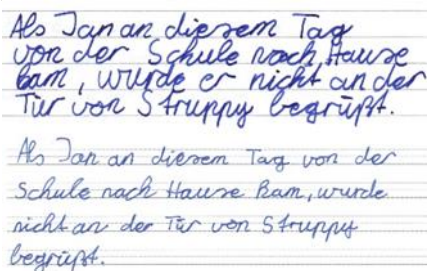 Als Jan an diesem Tag
von der Schule nach Hause
kam, wurde er nicht an der
Tür von Struppy begrüßt.
Als Jan an diesem Tag von der
Schule nach Hause kam, wurde
nicht an der Tür von Struppy
begrüßt.